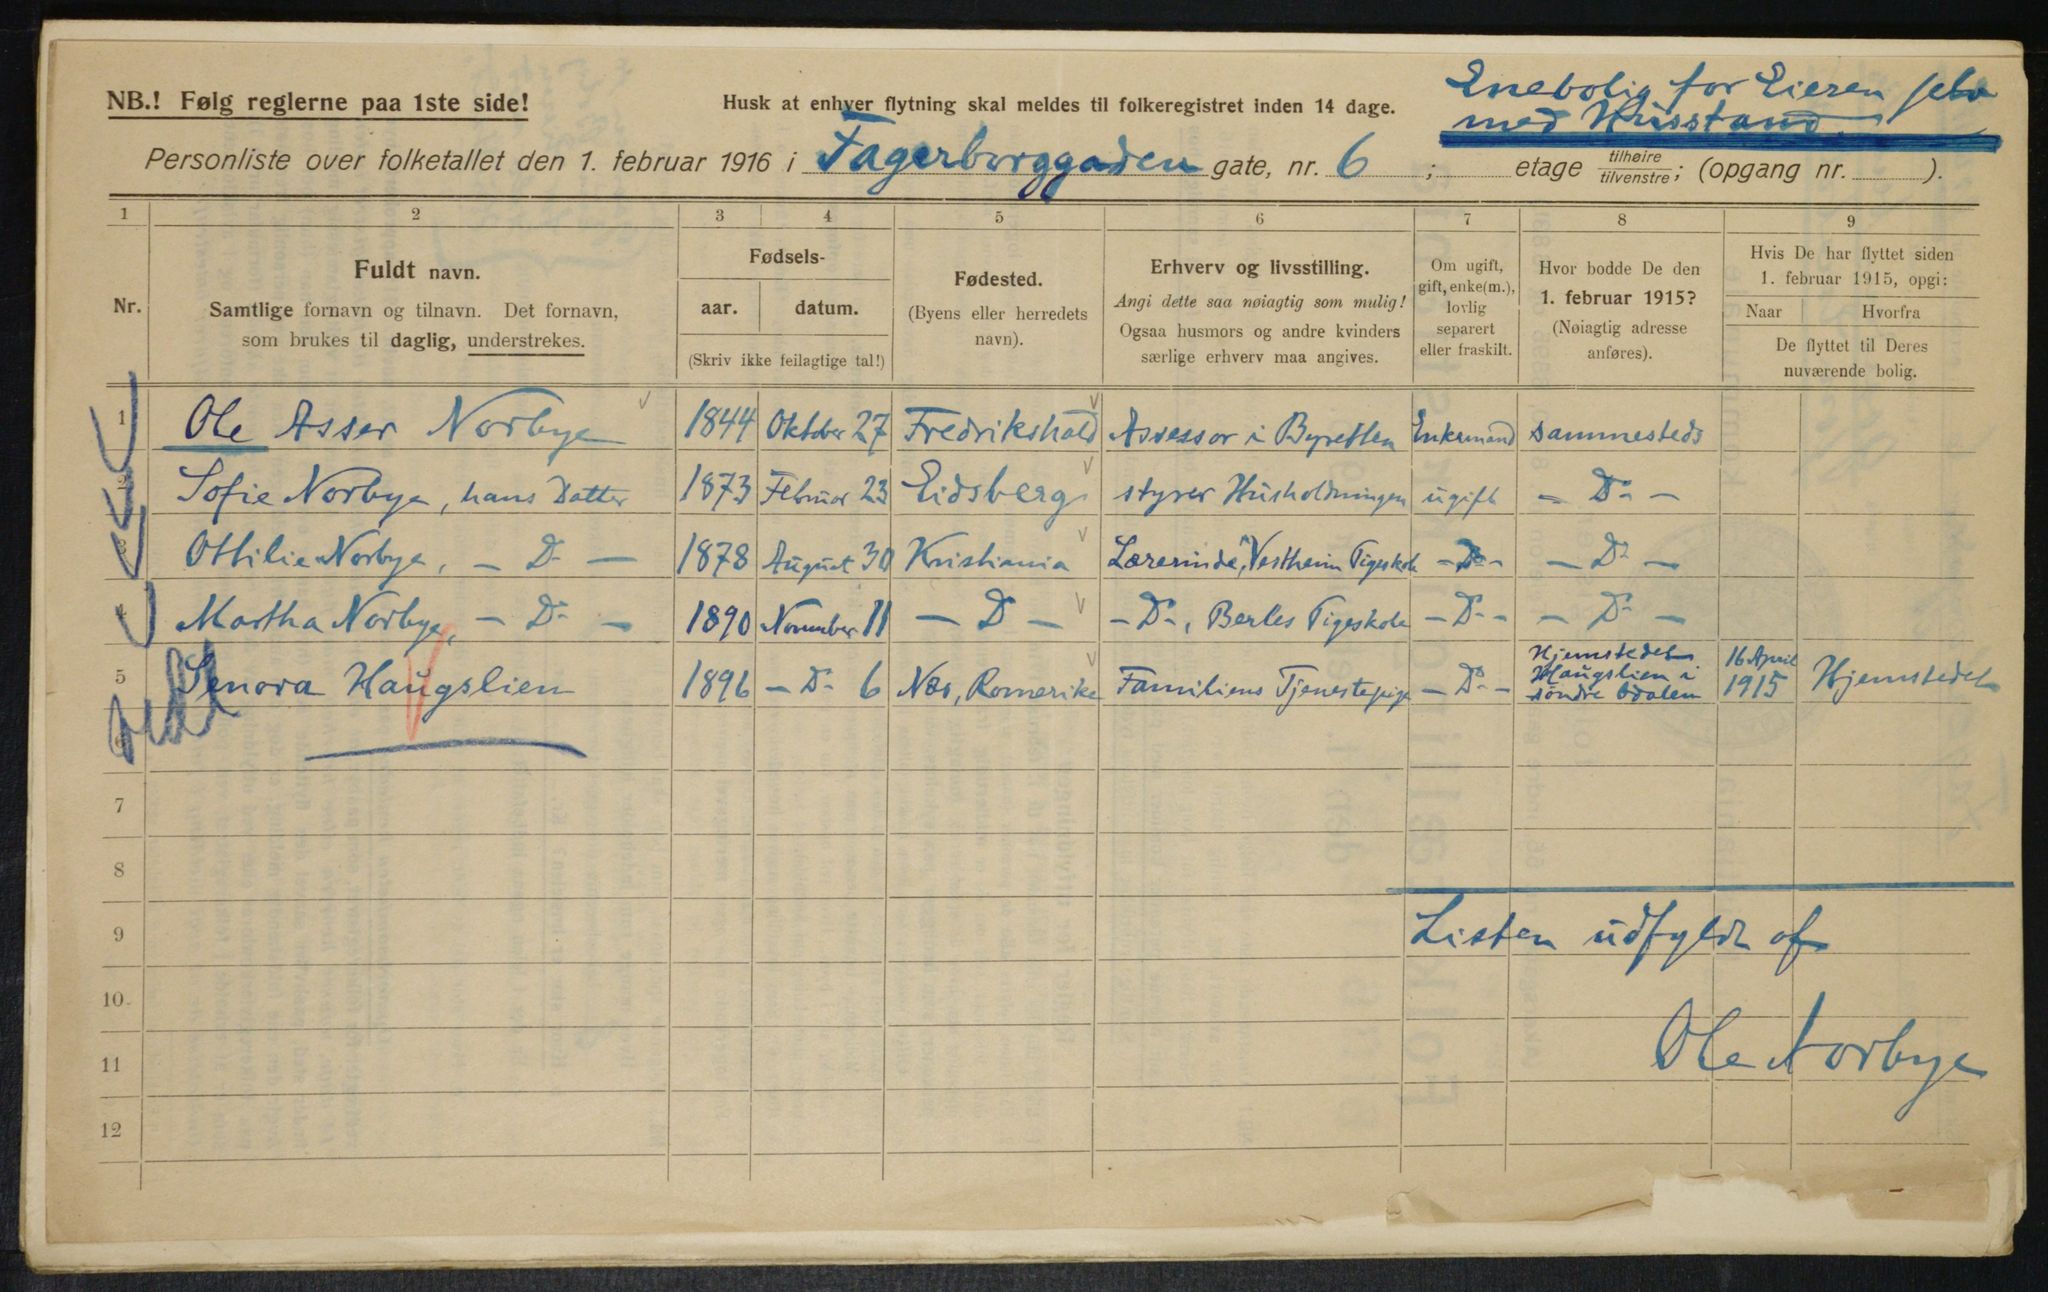 Enebolig for Eieren selv
med Husstand.
NB.! Følg reglerne paa 1ste side!
Husk at enhver flytning skal meldes til folkeregistret inden 14 dage.
Personliste over folketallet den 1. februar 1916 i Fagerborggaden gate, nr. 6 ; etage tilhøire/tilvenstre; (opgang nr. ).
1 2 3 4 5 6 7 8 9
Nr.
Fuldt navn.
Samtlige fornavn og tilnavn. Det fornavn,
som brukes til daglig, understrekes.
Fødsels-
aar. datum.
(Skriv ikke feilagtige tal!)
Fødested.
(Byens eller herredets
navn).
Erhverv og livsstilling.
Angi dette saa nøiagtig som mulig!
Ogsaa husmors og andre kvinders
særlige erhverv maa angives.
Om ugift,
gift, enke(m.),
lovlig
separert
eller fraskilt.
Hvor bodde De den
1. februar 1915?
(Nøiagtig adresse
anføres).
Hvis De har flyttet siden
1. februar 1915, opgi:
Naar Hvorfra
De flyttet til Deres
nuværende bolig.
1 Ole Asser Norbye 1844 Oktober 27 Fredrikshald Assessor i Byretten Enkemand sammesteds
2 Sofie Norbye, hans Datter 1873 Februar 23 Eidsberg styrer Husholdningen ugift - Do -
3 Ottilie Norbye, - Do - 1878 August 30 Kristiania Lærerinde, Vestheim Pigeskole - Do - - Do -
4 Martha Norbye, - Do - 1890 November 11 - Do - - Do -, Berles Pigeskole - Do - - Do -
5 Senora Haugslien 1896 - Do - 6 Næs, Romerike Familiens Tjenestepige - Do - Hjemstedet Haugslien i søndre Odalen 16 April 1915 Hjemstedet
6
7
8
9
Listen udfyldt af
10
Ole Norbye
11
12